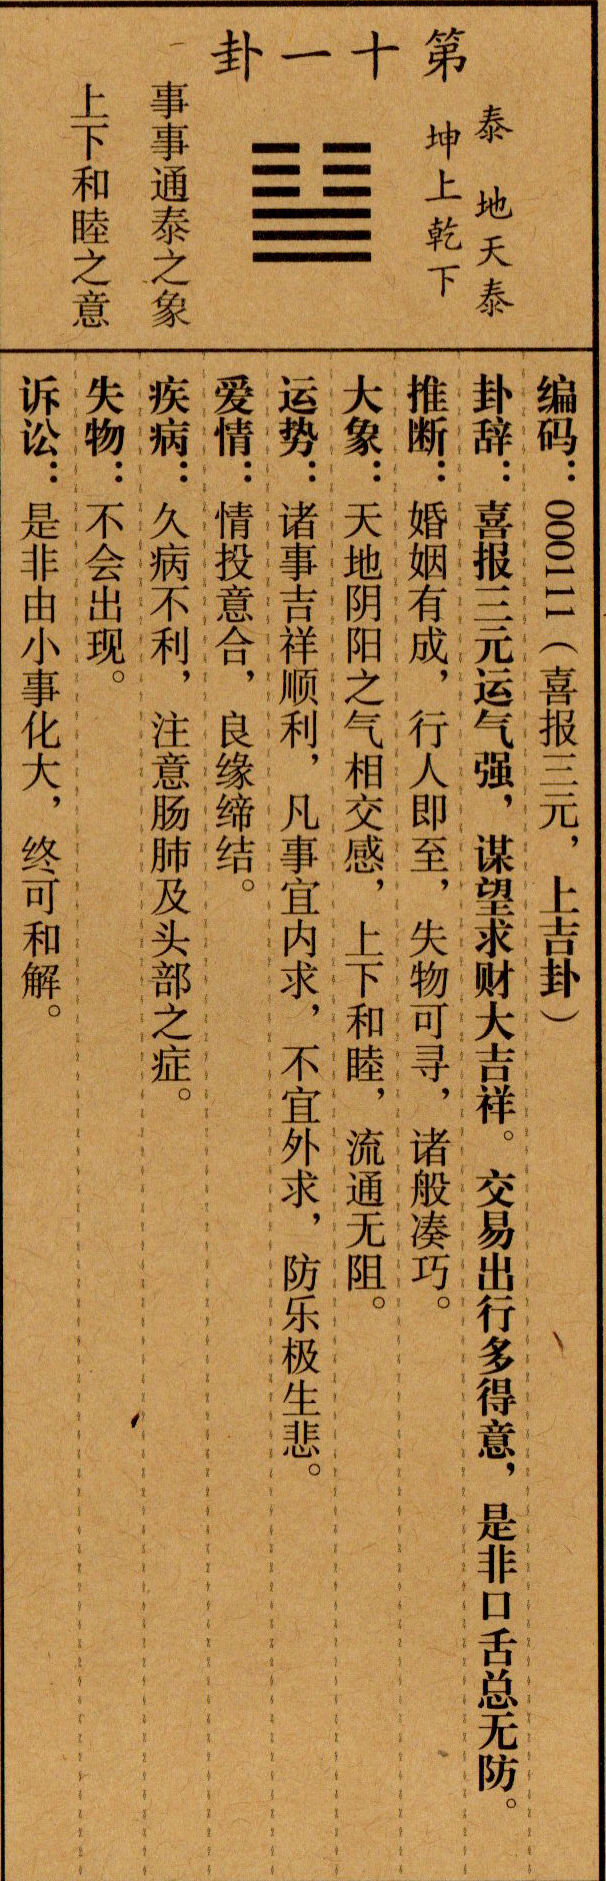 第十一卦
泰 地天泰
坤上乾下
事事通泰之象
上下和睦之意
编码：000111（喜报三元，上吉卦）
卦辞：喜报三元运气强，谋望求财大吉祥。交易出行多得意，是非口舌总无防。
推断：婚姻有成，行人即至，失物可寻，诸般凑巧。
大象：天地阴阳之气相交感，上下和睦，流通无阻。
运势：诸事吉祥顺利，凡事宜内求，不宜外求，防乐极生悲。
爱情：情投意合，良缘缔结。
疾病：久病不利，注意肠肺及头部之症。
失物：不会出现。
诉讼：是非由小事化大，终可和解。